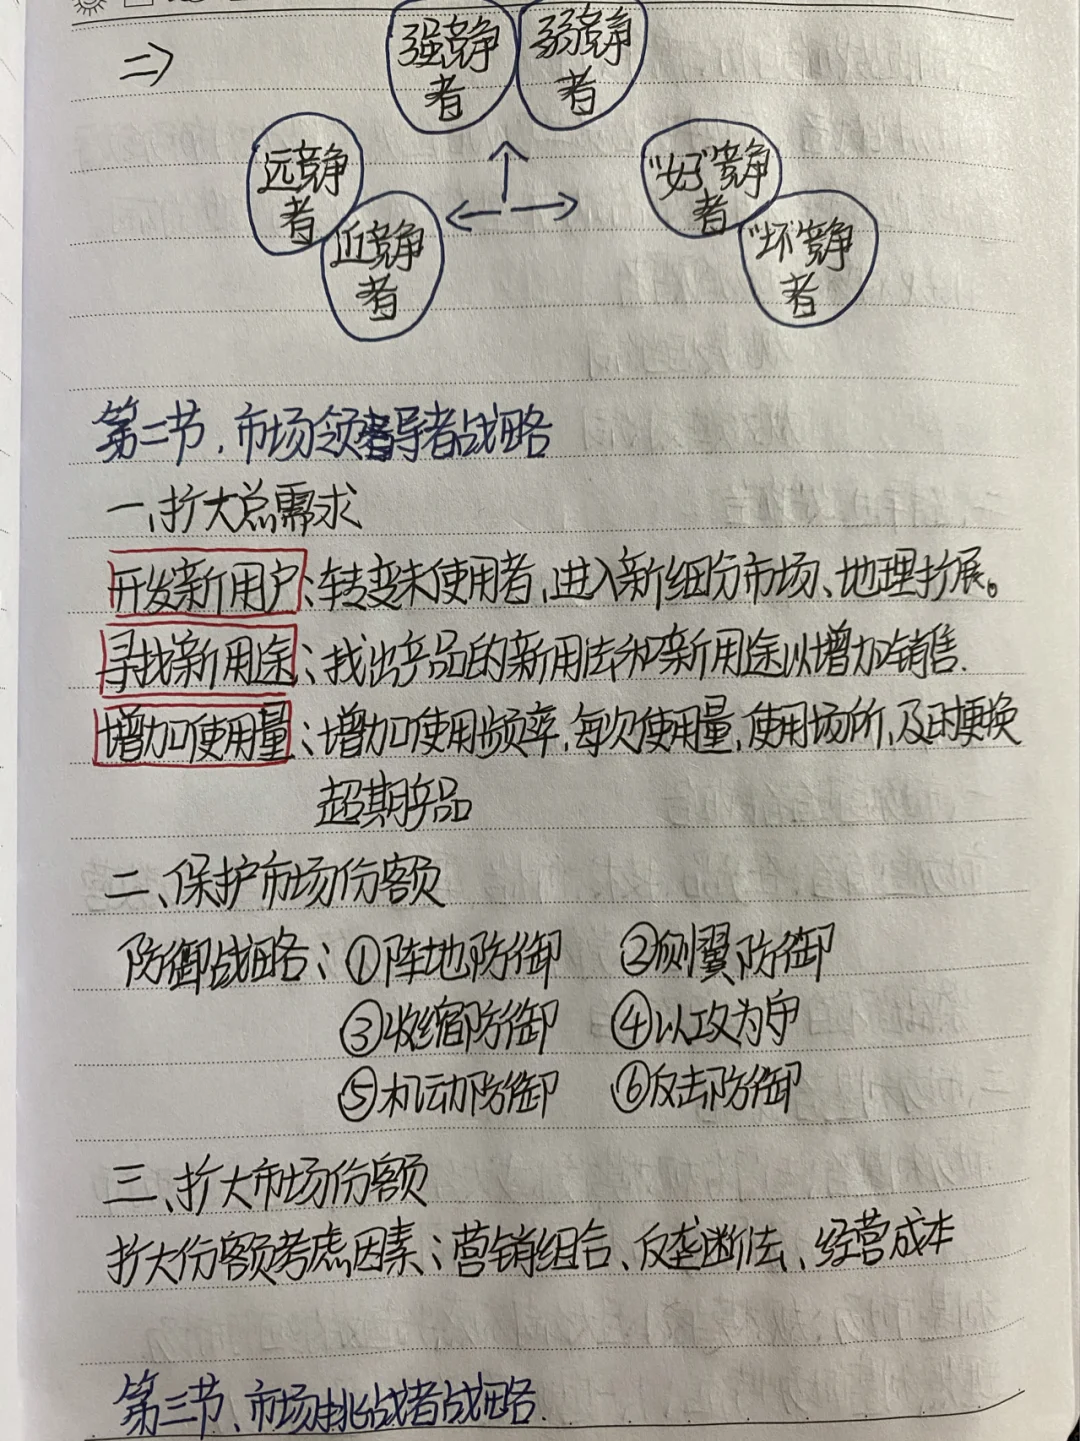 二>
强竞争者 弱竞争者
远竞争者
近竞争者
"好"竞争者
"坏"竞争者
第二节、市场领导者战略
一、扩大总需求
开发新用户：转变未使用者，进入新细分市场、地理扩展。
寻找新用途：找出产品的新用法和新用途以增加销售.
增加使用量：增加使用频率，每次使用量，使用场所，及时更换
超期产品
二、保护市场份额
防御战略：①阵地防御 ②侧翼防御
③收缩防御 ④以攻为守
⑤机动防御 ⑥反击防御
三、扩大市场份额
扩大份额考虑因素：营销组合、反垄断法、经营成本
第三节、市场挑战者战略.